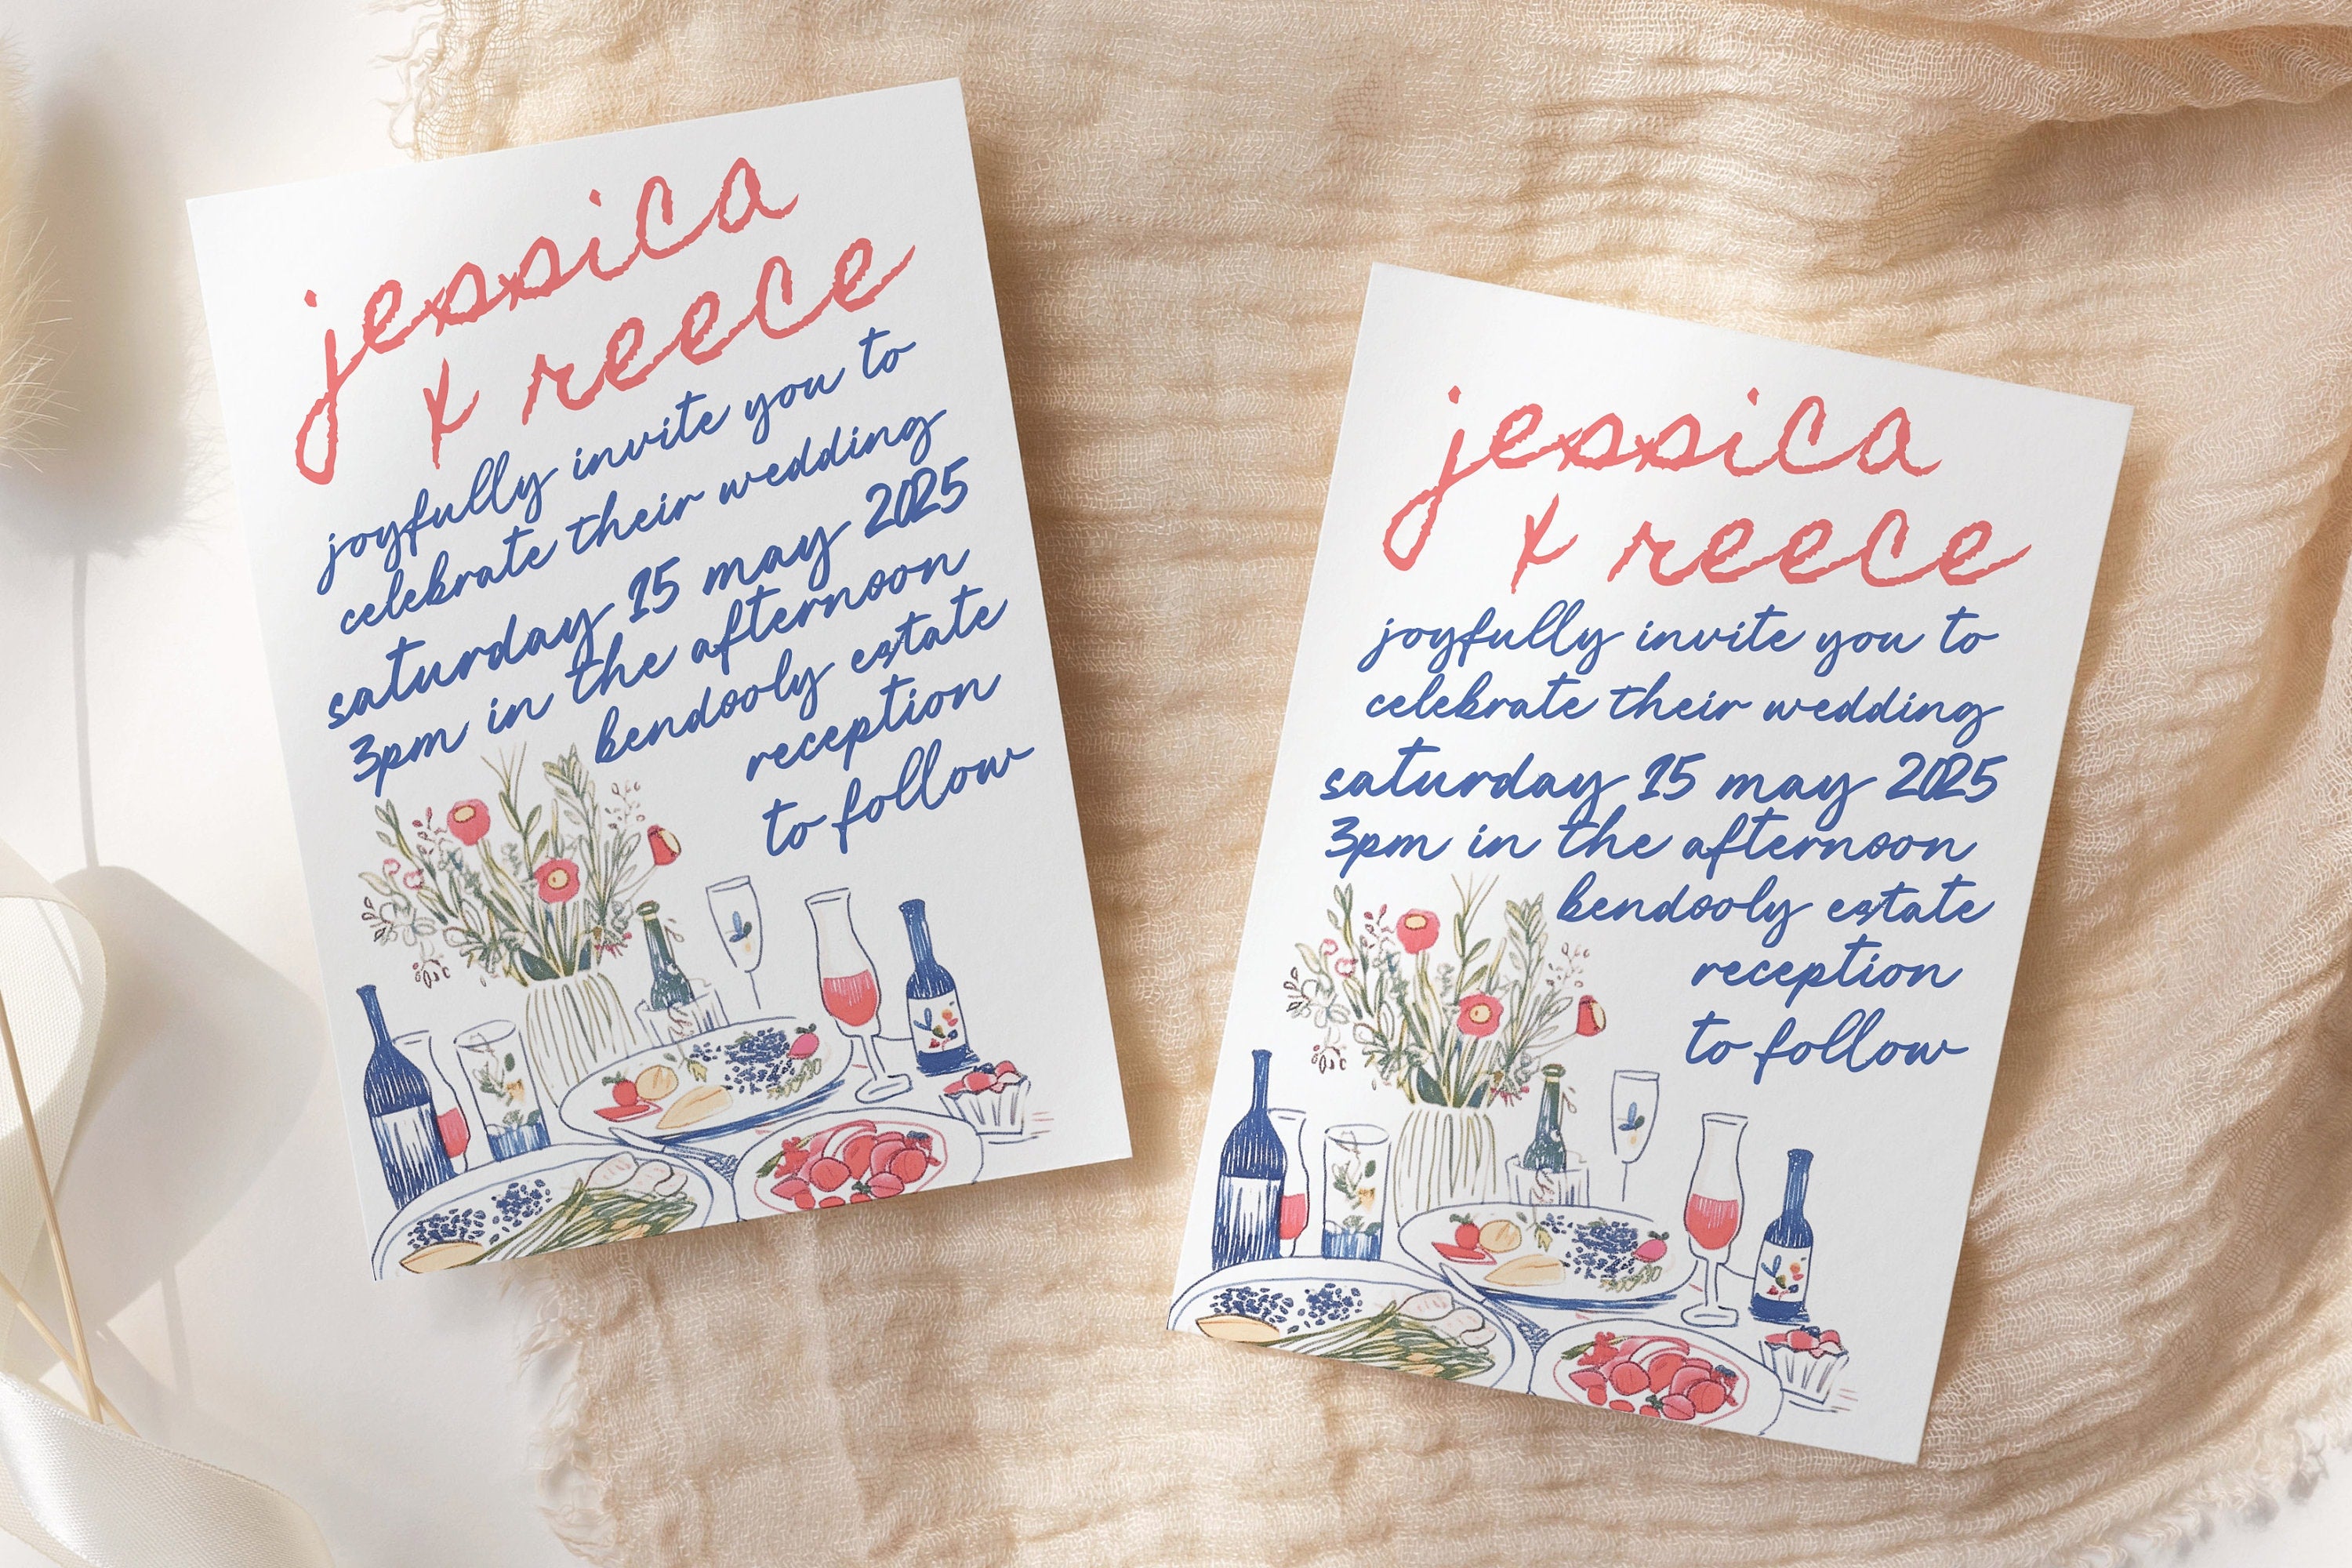 jessica
& reece
joyfully invite you to
celebrate their wedding
saturday 15 may 2025
3pm in the afternoon
bendooly estate
reception
to follow
jessica
& reece
joyfully invite you to
celebrate their wedding
saturday 15 may 2025
3pm in the afternoon
bendooly estate
reception
to follow